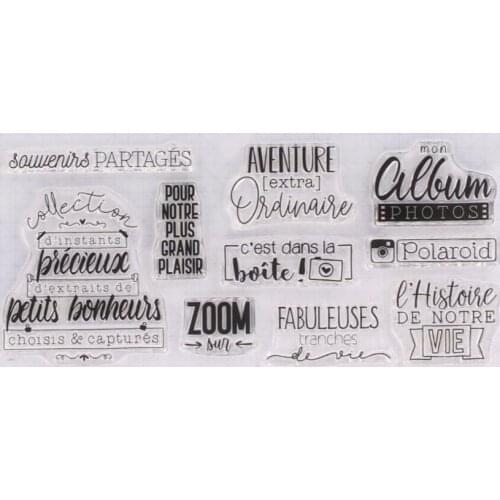 souvenirs PARTAGÉS
collection
d'instants
précieux
d'extraits de
petits bonheurs
choisis & capturés
POUR
NOTRE
PLUS
GRAND
PLAISIR
AVENTURE
[extra]
Ordinaire
c'est dans la
boîte !
ZOOM
sur
FABULEUSES
tranches
de vie
mon
Album
PHOTOS
Polaroid
l'Histoire
DE NOTRE
VIE